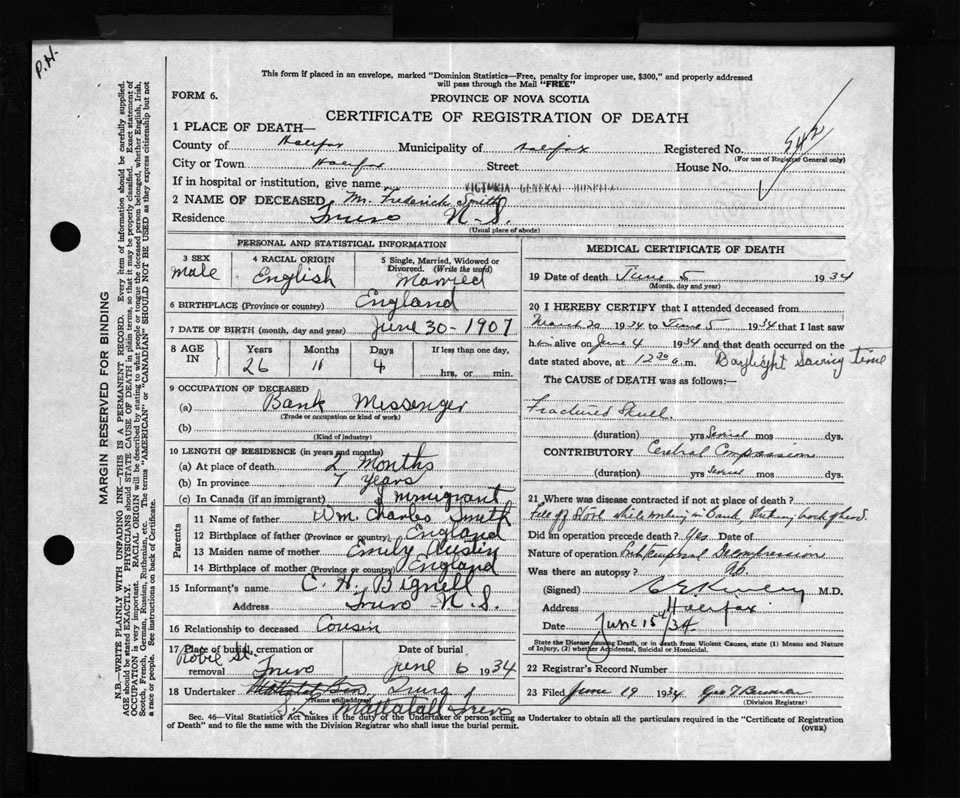 P.H.
This form if placed in an envelope, marked "Dominion Statistics—Free, penalty for improper use, $300," and properly addressed
will pass through the Mail "FREE"
FORM 6.
PROVINCE OF NOVA SCOTIA
CERTIFICATE OF REGISTRATION OF DEATH
1 PLACE OF DEATH—
County of Halifax Municipality of Halifax Registered No.
(For use of Registrar General only)
City or Town Halifax Street House No.
If in hospital or institution, give name VICTORIA GENERAL HOSPITAL
2 NAME OF DECEASED Mr. Frederick Smith
Residence Truro N.S.
(Usual place of abode)
PERSONAL AND STATISTICAL INFORMATION
3 SEX
male
4 RACIAL ORIGIN
English
5 Single, Married, Widowed or
Divorced. (Write the word)
Married
6 BIRTHPLACE (Province or country) England
7 DATE OF BIRTH (month, day and year) June 30-1907
8 AGE IN
Years Months Days If less than one day,
26 11 4 hrs. or min.
9 OCCUPATION OF DECEASED
(a) Bank Messenger
(Trade or occupation or kind of work)
(b)
(Kind of industry)
10 LENGTH OF RESIDENCE (in years and months)
(a) At place of death 2 Months
(b) In province 7 years
(c) In Canada (if an immigrant) Immigrant
Parents
11 Name of father Wm. Charles Smith
12 Birthplace of father (Province or country) England
13 Maiden name of mother Emily Austin
14 Birthplace of mother (Province or country) England
15 Informant's name C. H. Bignell
Address Truro N.S.
16 Relationship to deceased Cousin
17 Place of burial, cremation or removal Robie St. Truro
Date of burial June 6 1934
18 Undertaker Mattatall
(Name and address)
Mattatall Truro
MEDICAL CERTIFICATE OF DEATH
19 Date of death June 5 1934
(Month, day and year)
20 I HEREBY CERTIFY that I attended deceased from
March 20 1934 to June 5 1934 that I last saw
him alive on June 4 1934 and that death occurred on the
date stated above, at 12 30 a.m. Daylight Saving time
The CAUSE of DEATH was as follows:
Fractured Skull.
(duration) yrs mos dys.
CONTRIBUTORY Compression
(duration) yrs mos dys.
21 Where was disease contracted if not at place of death?
Fell off stool while working in Bank, striking back of head.
Did an operation precede death? Yes Date of
Nature of operation Subtemporal Decompression
Was there an autopsy?
(Signed) M.D.
Address Halifax
Date June 15th/34
State the Disease causing Death, or in death from Violent Causes, state (1) Means and Nature
of Injury, (2) whether Accidental, Suicidal or Homicidal.
22 Registrar's Record Number
23 Filed June 19 1934 Geo T
(Division Registrar)
Sec. 46—Vital Statistics Act makes it the duty of the Undertaker or person acting as Undertaker to obtain all the particulars required in the "Certificate of Registration
of Death" and to file the same with the Division Registrar who shall issue the burial permit.
(OVER)
MARGIN RESERVED FOR BINDING
N.B.—WRITE PLAINLY WITH UNFADING INK—THIS IS A PERMANENT RECORD. Every item of information should be carefully supplied.
AGE should be stated EXACTLY. PHYSICIANS should STATE CAUSE OF DEATH in plain terms, so that it may be properly classified. Exact statement of
OCCUPATION is very important. RACIAL ORIGIN will be described by stating to what people or tongue the deceased person belonged, whether English, Irish,
Scotch, French, German, Russian, Ruthenian, etc. The terms "AMERICAN" or "CANADIAN" SHOULD NOT BE USED as they express citizenship but not
a race or people. See instructions on back of Certificate.